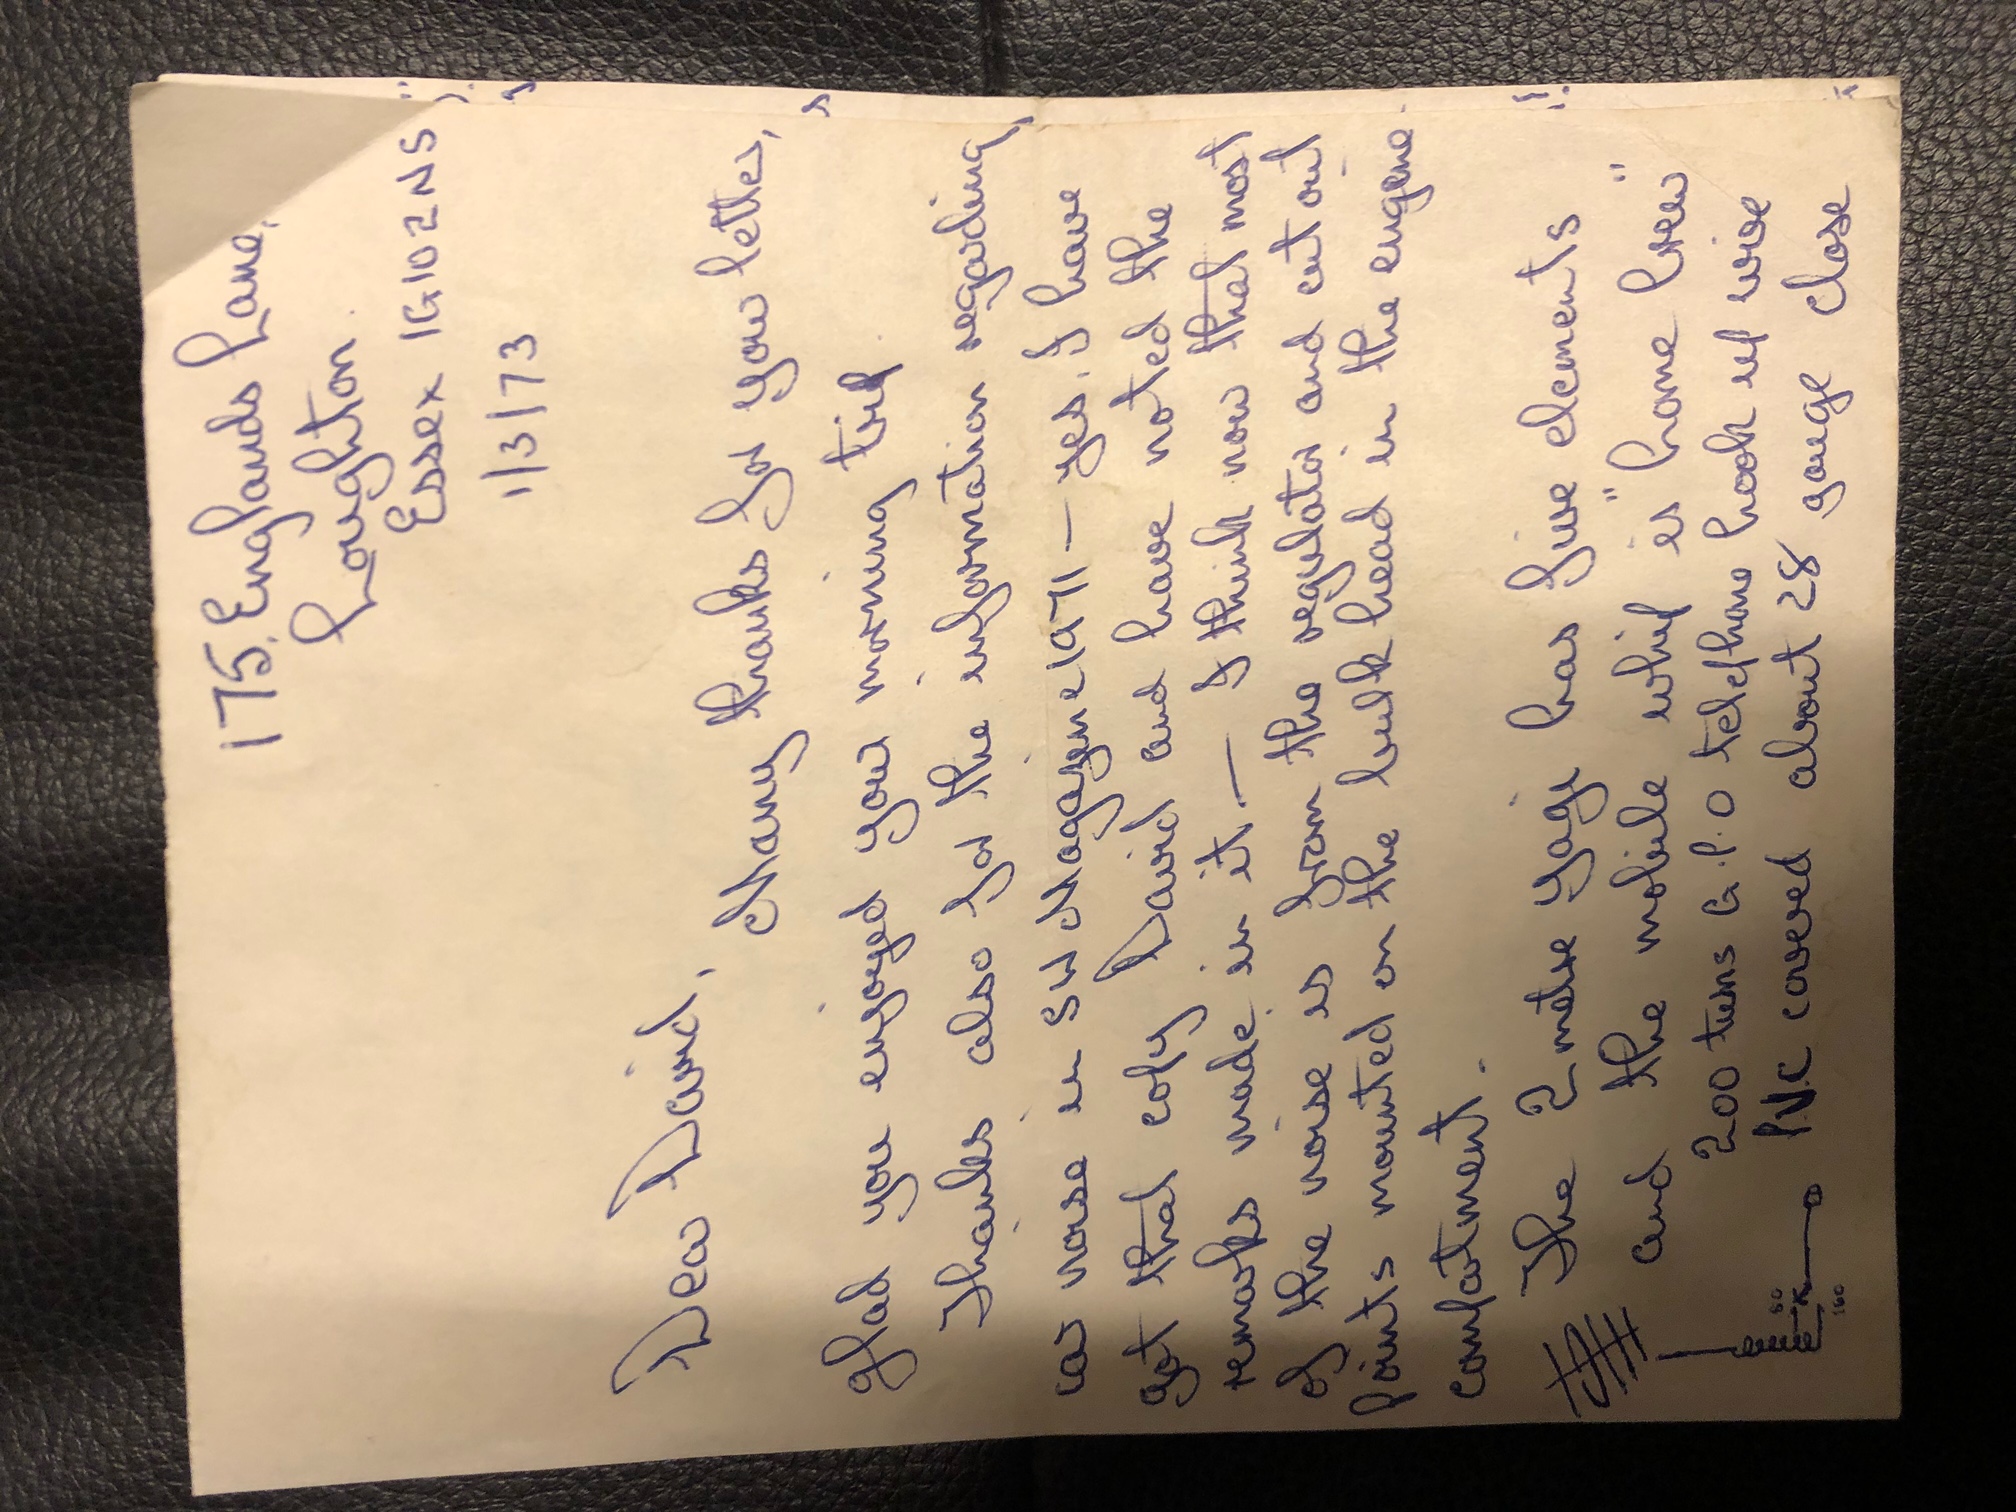 175, Englands Lane,
Loughton
Essex IG10 2NS
1/3/73
Dear David,
Many thanks for your letter,
Glad you enjoyed your morning trip
Thanks also for the information regarding
car noise in SW Magazine 1971 - yes. I have
got that copy David and have noted the
remarks made in it. — I think now that most
of the noise is from the regulator and cut out
points mounted on the bulk head in the engine
compartment.
The 2 metre yagi has five elements
and the mobile whip is "home brew"
200 turns G.P.O telephone hook up wire
P.V.C covered about 28 gauge close
60
160